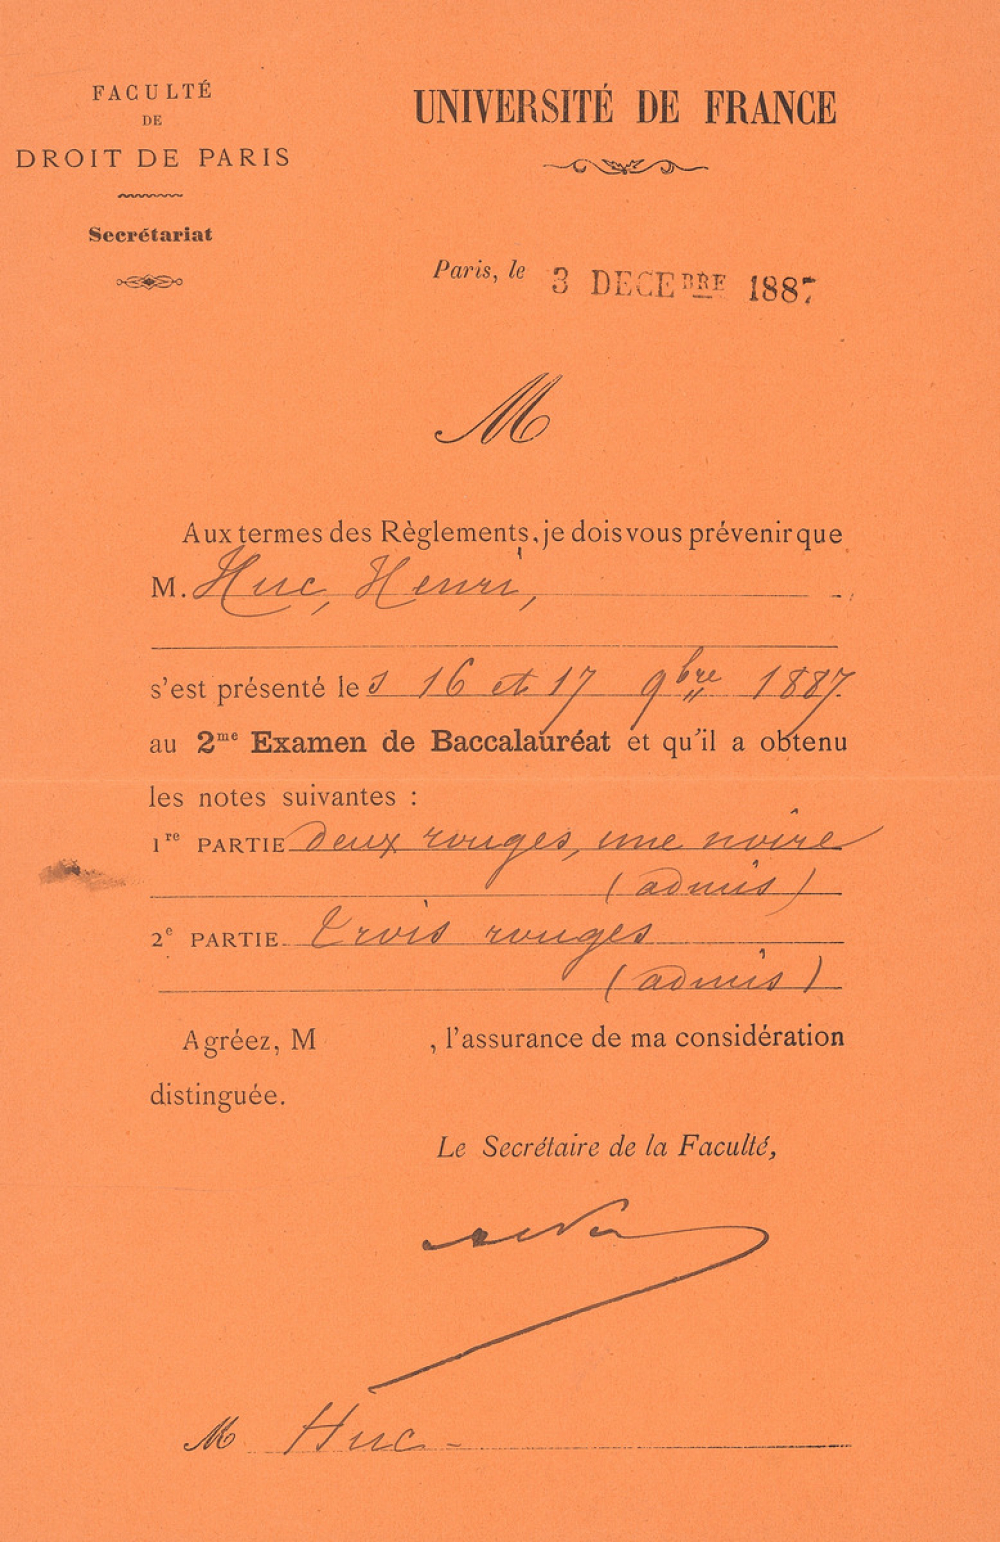 FACULTÉ
DE
DROIT DE PARIS
Secrétariat
UNIVERSITÉ DE FRANCE
Paris, le 3 DECEBRE 1887
M
Aux termes des Règlements, je dois vous prévenir que
M. Huc, Henri,
s'est présenté les 16 et 17 9bre 1887.
au 2me Examen de Baccalauréat et qu'il a obtenu
les notes suivantes :
1re PARTIE Deux rouges, une noire
(admis)
2e PARTIE Trois rouges
(admis)
Agréez, M , l'assurance de ma considération
distinguée.
Le Secrétaire de la Faculté,
M Huc